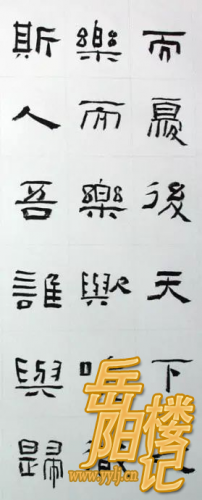 而憂後天下之
樂而樂歟噫微
斯人吾誰與歸
岳阳楼记
www.yylj.cn